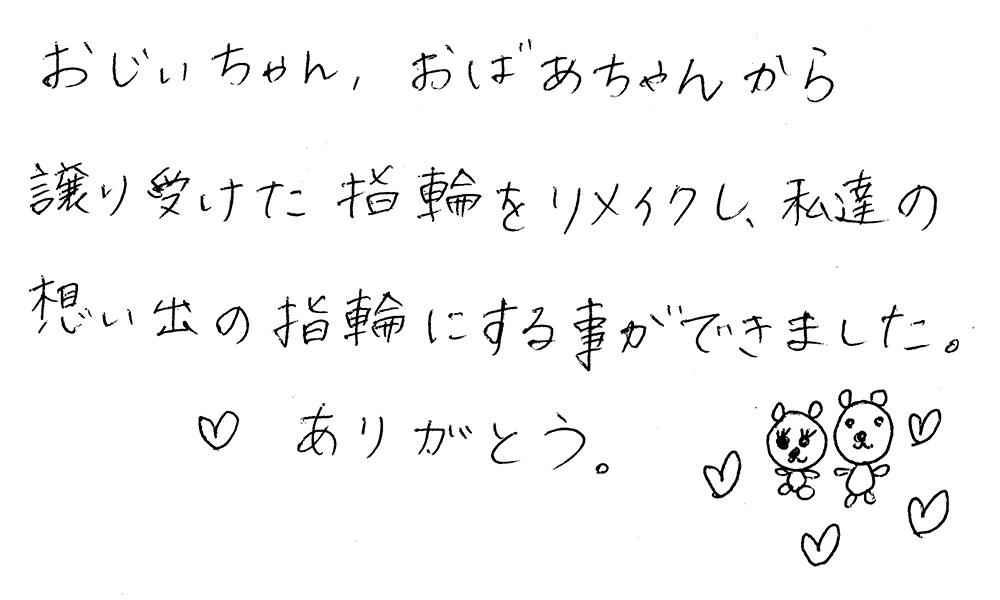 おじいちゃん, おばあちゃんから
譲り受けた指輪をリメイクし、私達の
想い出の指輪にする事ができました。
♡ ありがとう。